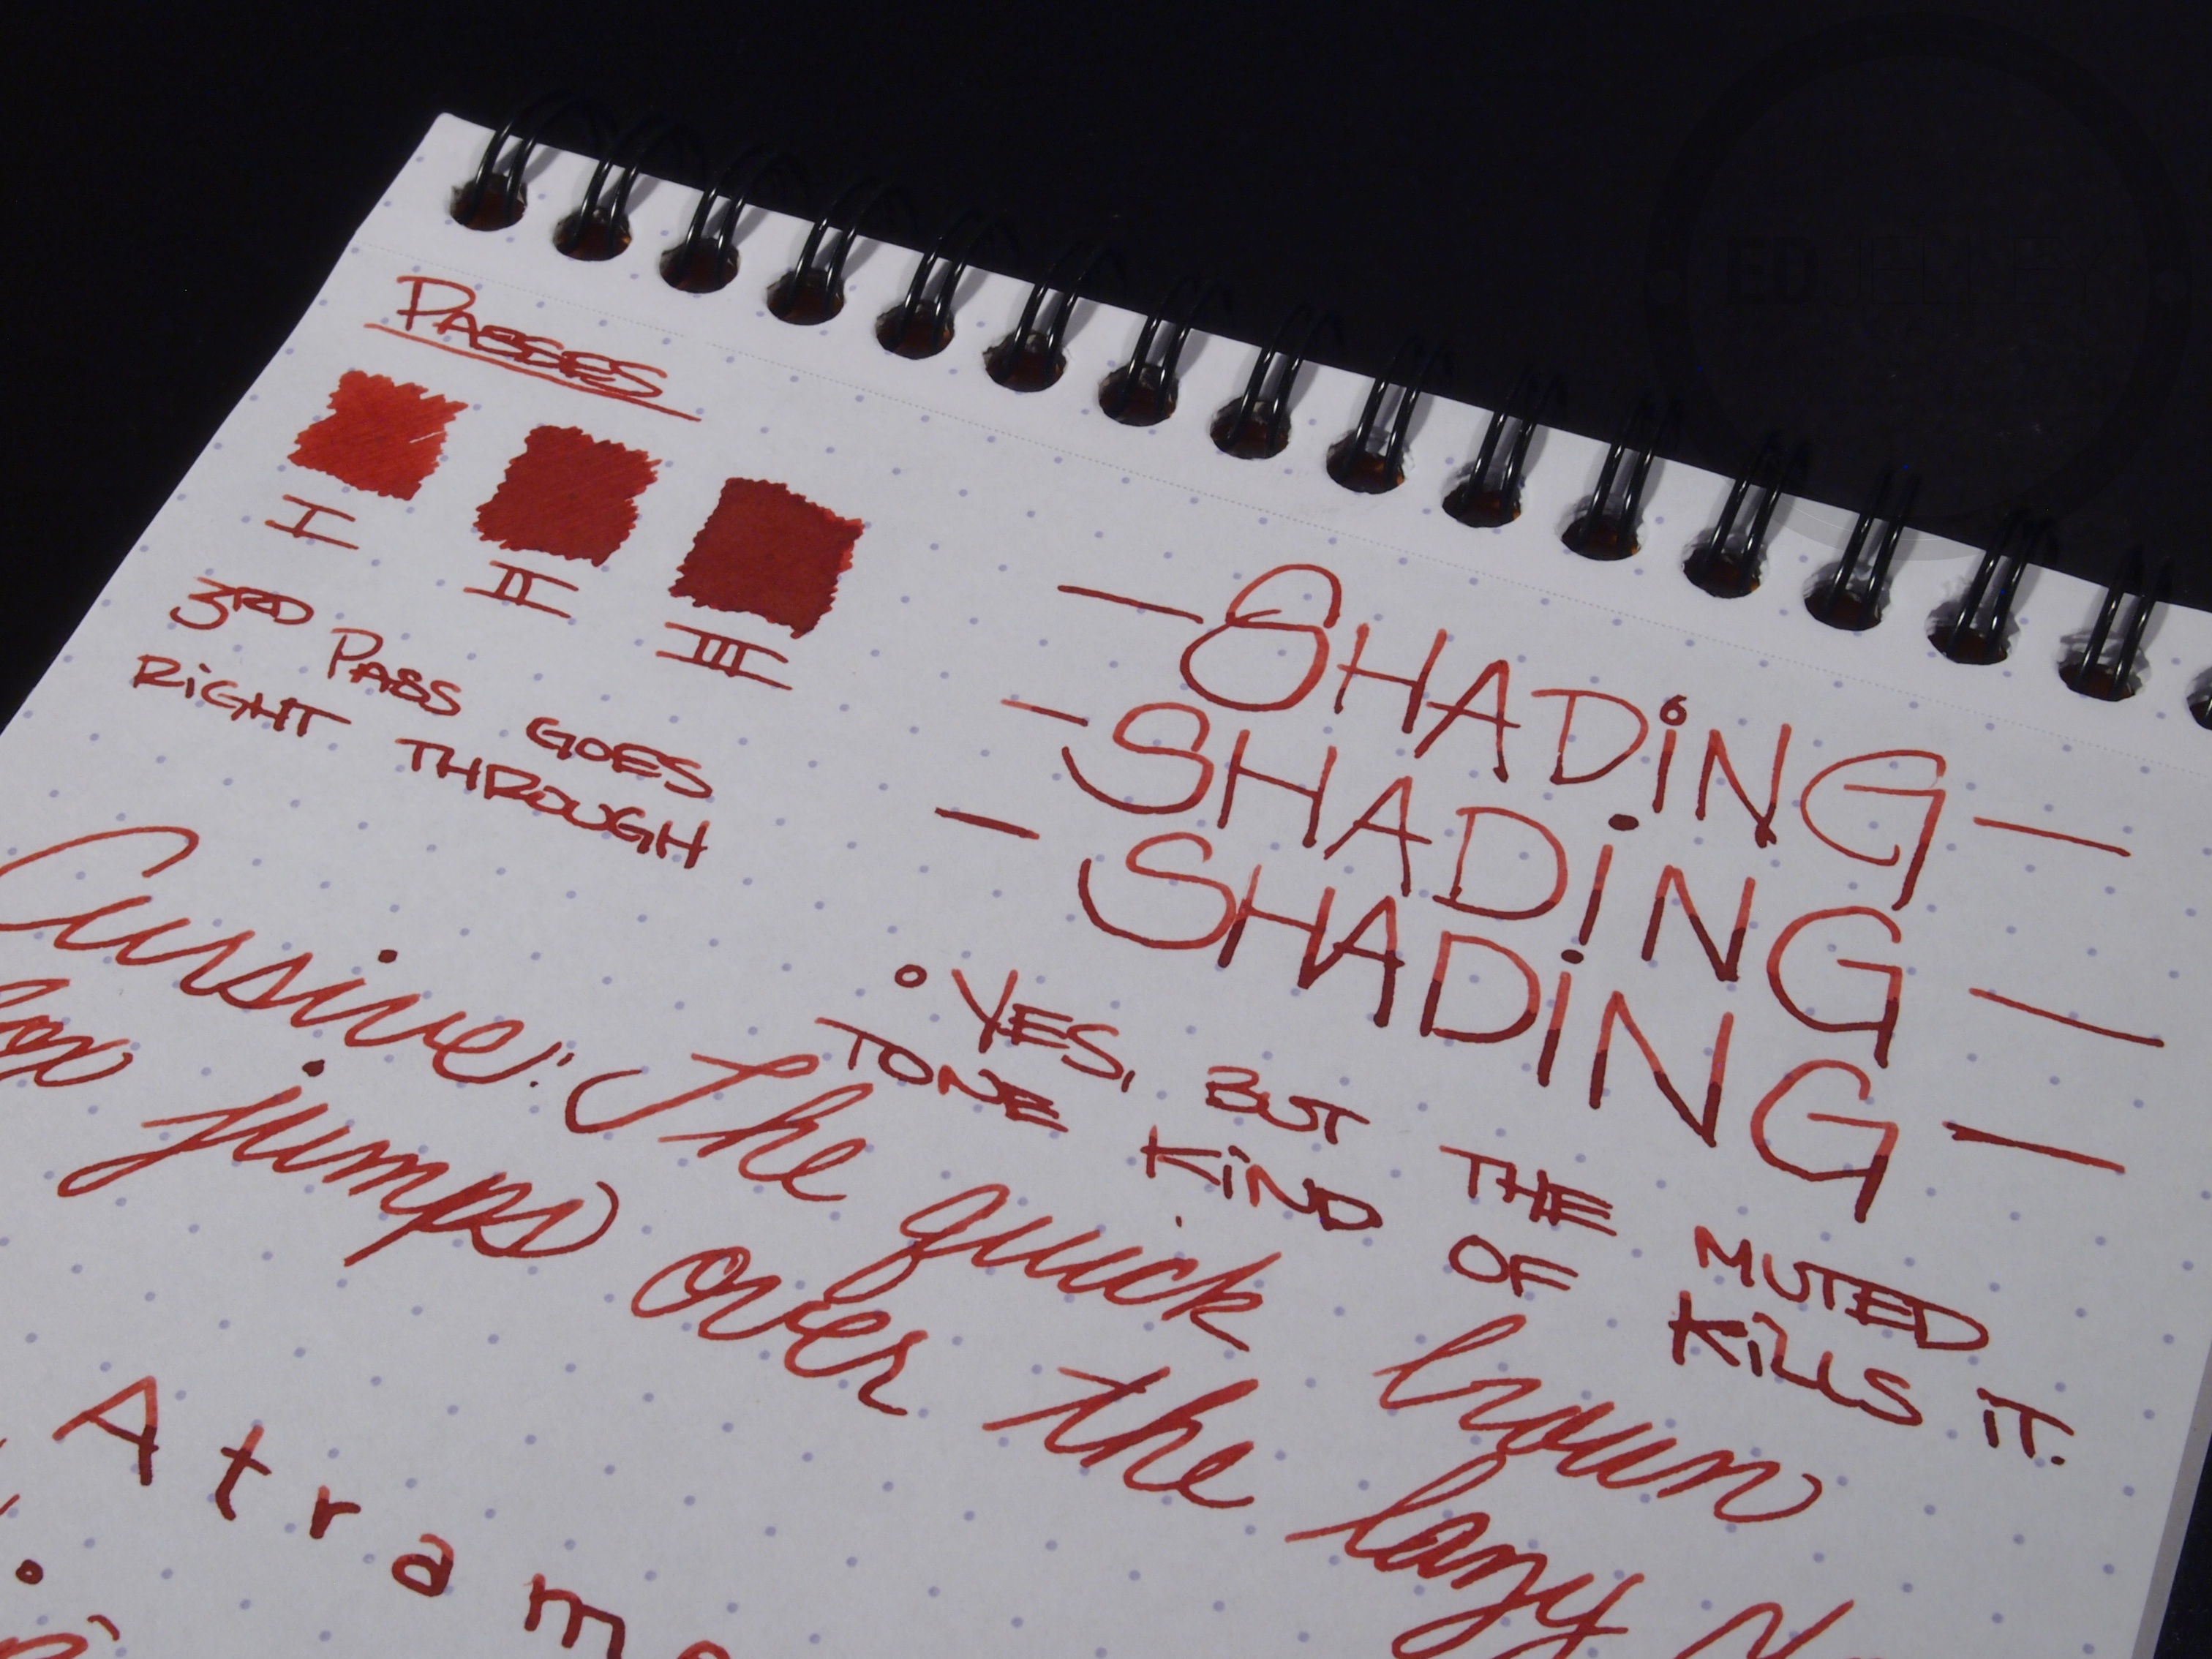 PASSES
I II III
3RD PASS GOES
RIGHT THROUGH
— SHADiNG —
— SHADiNG —
— SHADiNG —
• YES, BUT THE MUTED
TONE KiND OF KiLLS iT.
Cursive: The quick brown
fox jumps over the lazy
Atram